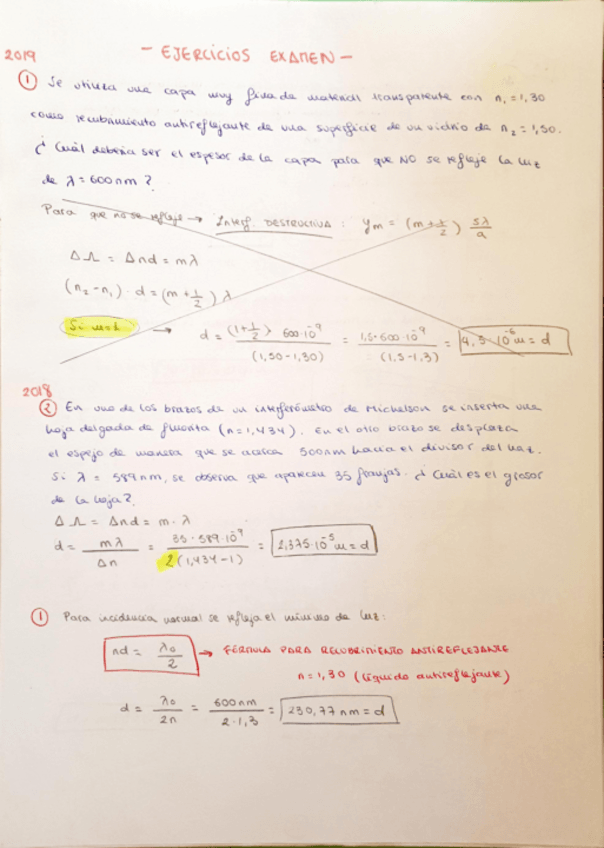 2019
- EJERCICIOS EXAMEN -
① Se utiliza una capa muy fina de material transparente con n₁ = 1,30
como recubrimiento antireflejante de una superficie de un vidrio de n₂ = 1,50.
¿Cuál debería ser el espesor de la capa para que NO se refleje la luz
de λ = 600 nm?
Para que no se refleje → Interf. DESTRUCTIVA : ym = (m + 1/2) sλ/a
ΔΛ = Δnd = mλ
(n₂ - n₁) · d = (m + 1/2) λ
Si m=1 → d = (1 + 1/2) 600·10⁻⁹ / (1,50 - 1,30) = 1,5·600·10⁻⁹ / (1,5 - 1,3) = 4,5·10⁻⁶ m = d
2018
② En uno de los brazos de un interferómetro de Michelson se inserta una
hoja delgada de fluorita (n = 1,434). En el otro brazo se desplaza
el espejo de manera que se acerca 500nm hacia el divisor del haz.
Si λ = 589 nm, se observa que aparecen 35 franjas. ¿Cuál es el grosor
de la hoja?
ΔΛ = Δnd = m·λ
d = mλ / Δn = 35·589·10⁻⁹ / 2(1,434 - 1) = 2,375·10⁻⁵ m = d
① Para incidencia normal se refleja el mínimo de luz:
nd = λ₀/2 → FÓRMULA PARA RECUBRIMIENTO ANTIREFLEJANTE
n = 1,30 (líquido antireflejante)
d = λ₀/2n = 600nm / 2·1,3 = 230,77 nm = d